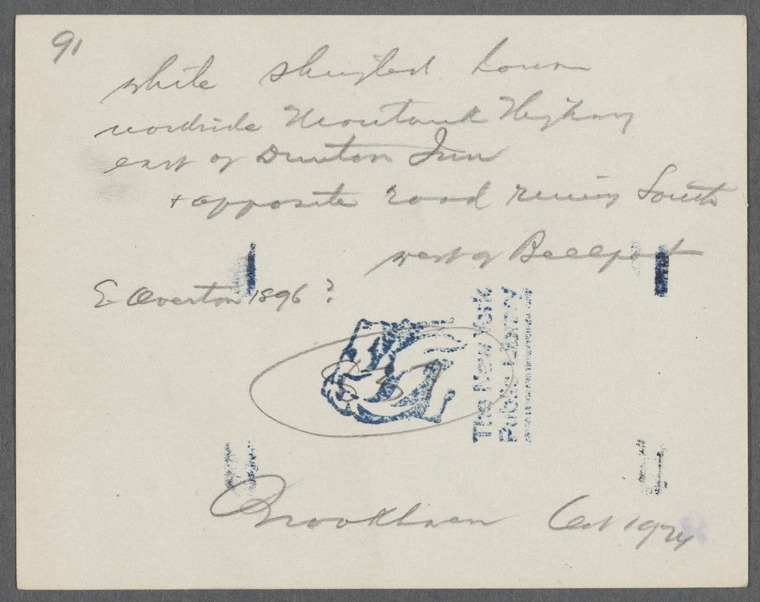 91
white shingled house
northside Montauk Highway
east of Dunton Inn
+ opposite road runing South
west of Bellport
E Overton 1896 ?
837
The New York
Public Library
Brookhaven Oct 1924